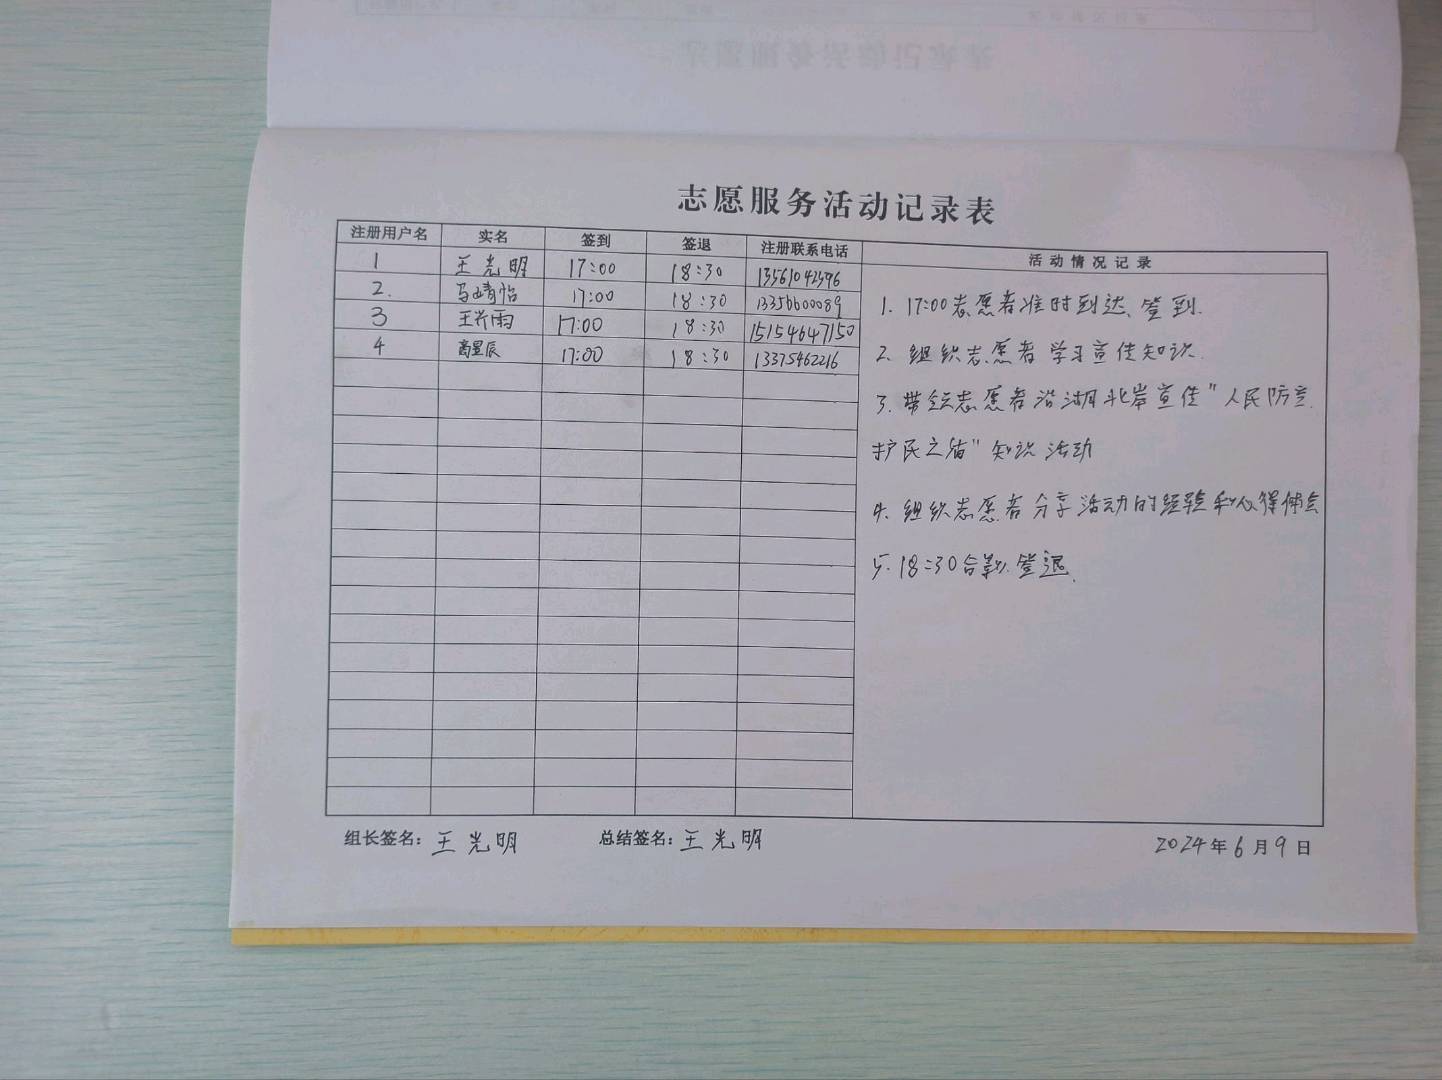 志愿服务活动记录表
注册用户名 实名 签到 签退 注册联系电话 活动情况记录
1 王光明 17:00 18:30 13561042596
2. 马婧怡 17:00 18:30 13356600089
3 王芥雨 17:00 18:30 15154647150
4 高星辰 17:00 18:30 13375462216
1. 17:00志愿者准时到达、签到.
2. 组织志愿者学习宣传知识.
3. 带领志愿者沿湖北岸宣传"人民防空.
护民之盾"知识活动
4. 组织志愿者分享活动的经验和心得体会
5. 18:30合影.签退.
组长签名: 王光明 总结签名: 王光明 2024年6月9日